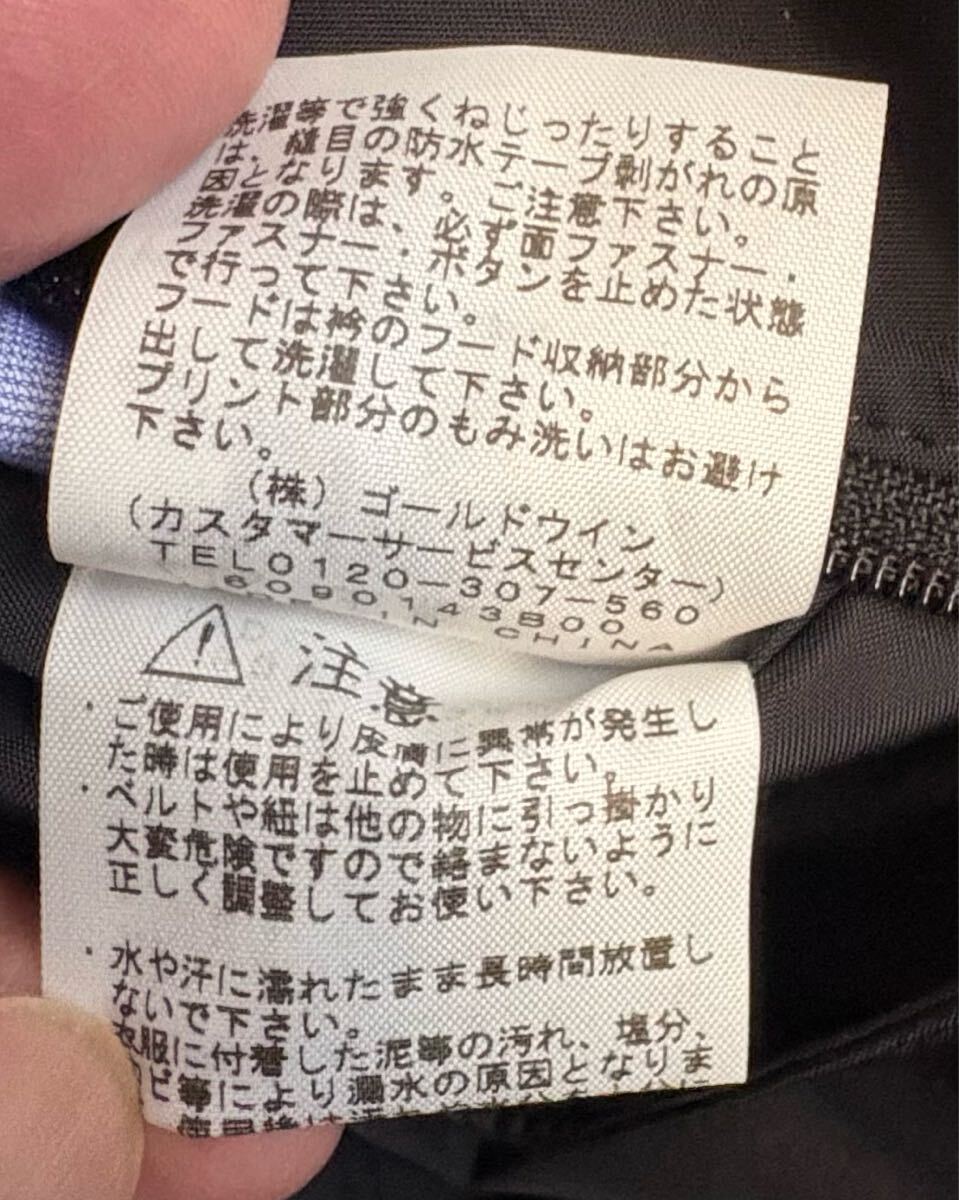 洗濯等で強くねじったりすること
は、縫目の防水テープ剥がれの原
因となります。ご注意下さい。
洗濯の際は、必ず面ファスナー・
ファスナー・ボタンを止めた状態
で行って下さい。
フードは衿のフード収納部分から
出して洗濯して下さい。
プリント部分のもみ洗いはお避け
下さい。
(株)ゴールドウイン
(カスタマーサービスセンター)
TEL0120-307-560
6090143800
IN CHINA
注意
・ご使用により皮膚に異常が発生し
た時は使用を止めて下さい。
・ベルトや紐は他の物に引っ掛かり
大変危険ですので絡まないように
正しく調整してお使い下さい。
・水や汗に濡れたまま長時間放置し
ないで下さい。
衣服に付着した泥等の汚れ、塩分、
ビ等により漏水の原因となりま
使用後は